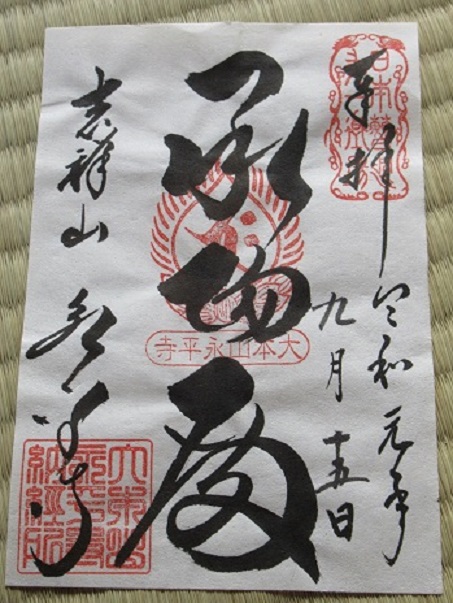 奉拝
令和元年
九月十五日
承陽殿
吉祥山 永平寺
大本山永平寺
大本山
永平寺
納経所